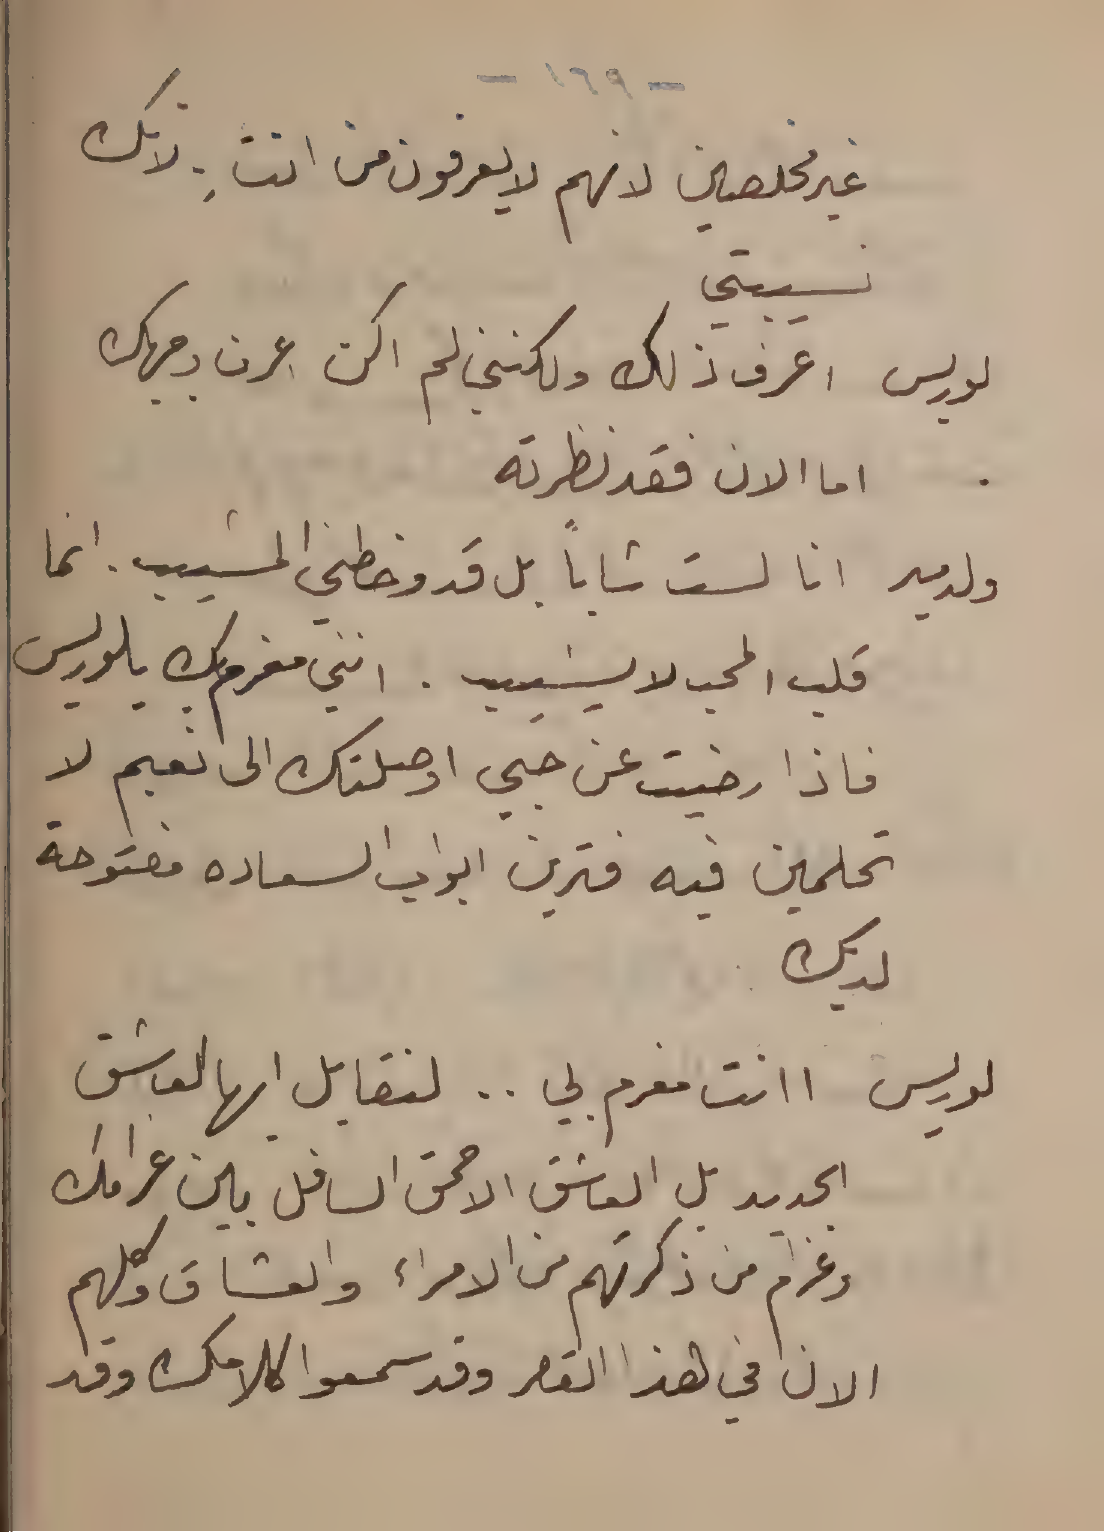 - ١٦٩ -
غير مخلصين لانهم لا يعرفون من انت . لانك
نسيبتي
لوريس اعرف ذلك ولكنني لم اكن اعرف وجهك
اما الان فقد نظرته
ولدمير انا لست شاباً بل قد وخطني المشيب . انما
قلب المحب لا يشيب . انني مغرم بك يا لوريس
فاذا رضيت عن حبي اوصلتك الى نعيم لا
تحلمين فيه فترين ابواب السعاده مفتوحة
لديك
لوريس اانت مغرم بي .. لنقابل ايها العاشق
الجديد بل العاشق الاحمق السافل بين غرامك
وغرام من ذكرتهم من الامراء والعشاق وكلهم
الان في هذا القصر وقد سمعوا كلامك وقد